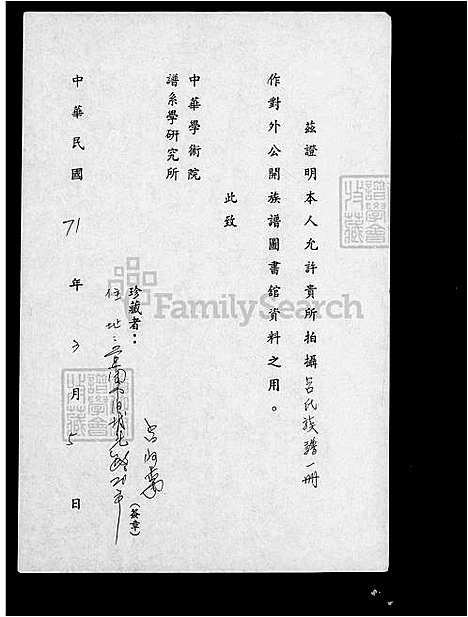 茲證明本人允許貴所拍攝呂氏族譜一冊
作對外公開族譜圖書館資料之用。
此致
中華學術院
譜系學研究所
珍藏者：呂
(簽章)
住址：
中華民國71年3月5日
譜學會收藏
譜學會收藏
FamilySearch